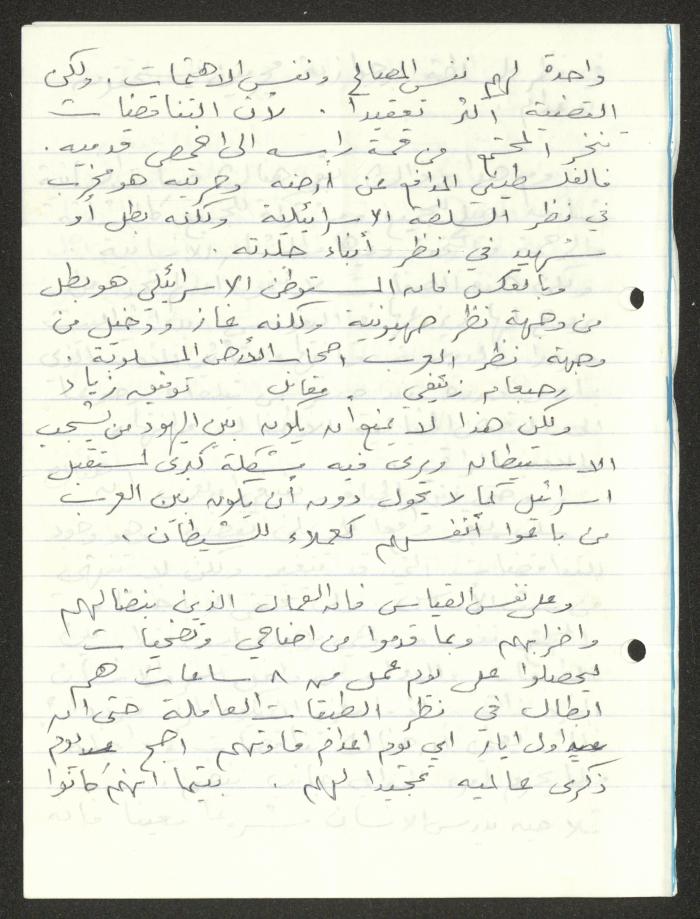 واحدة لهم نفس المصالح ونفس الاهتمامات . ولكن
القضية اكثر تعقيداً . لأن التناقضات
تنخر المجتمع من قمة راسه الى اخمص قدميه .
فالفلسطيني المدافع عن أرضه وحريته هو مخرب
في نظر السلطة الاسرائيلية ولكنه بطل أو
شهيد في نظر أبناء جلدته .
وبالعكس فان المستوطن الاسرائيلي هو بطل
من وجهة نظر صهيونية ولكنه غاز ودخيل من
وجهة نظر العرب اصحاب الأرض المسلوبة .
رحبعام زئيفي مقابل توفيق زياد
ولكن هذا لا يمنع ان يكون بين اليهود من يشجب
الاستيطان ويرى فيه مشكلة كبرى لمستقبل
اسرائيل كما لا يحول دون أن يكون بين العرب
من باعوا أنفسهم كعملاء للشيطان .
وعلى نفس القياس فان العمال الذين بنضالهم
واضرابهم وما قدموا من اضاحي وتضحيات
ليحصلوا على يوم عمل من ٨ ساعات هم
ابطال في نظر الطبقات العاملة حتى ان
اول ايار اي يوم اعدام قادتهم اصبح يوم
ذكرى عالميه تمجيدا لهم . بينما انهم كانوا